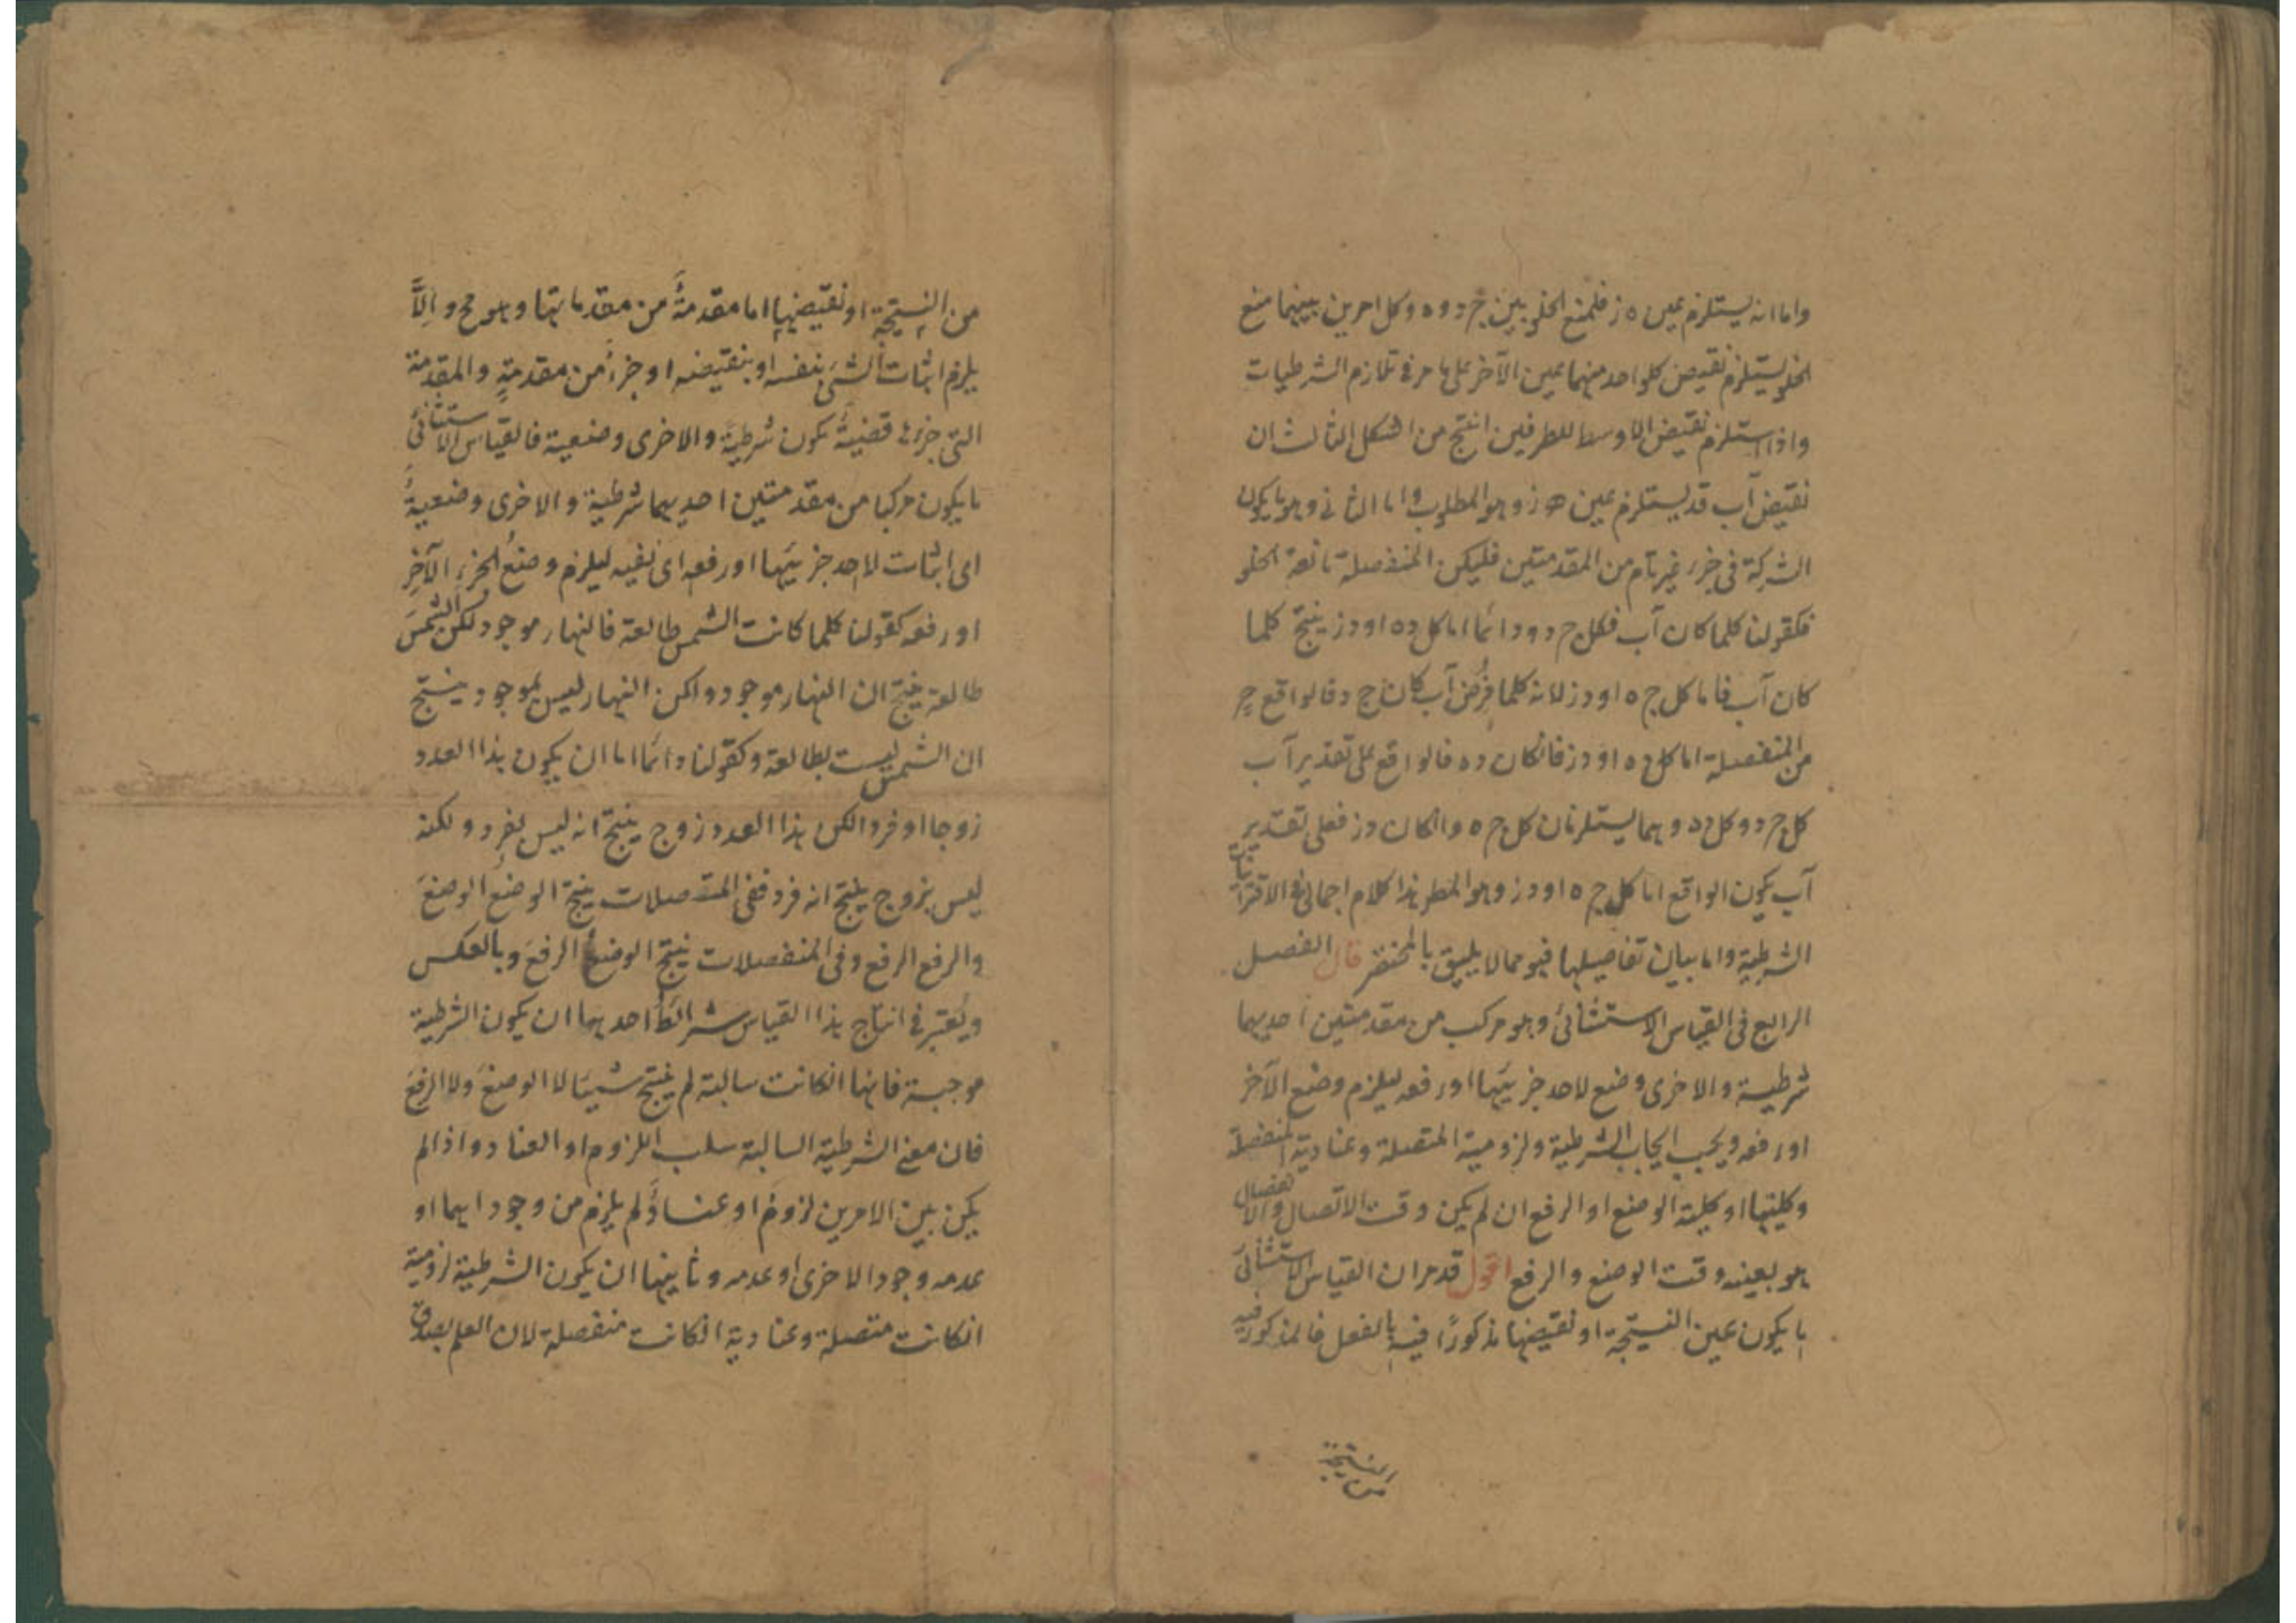 واما انه يستلزم عين ه ز فلمنع الخلو بين ج د و ه وكل امرين بينهما منع
الخلو يستلزم نقيض كلواحد منهما عين الآخر على ما مر في تلازم الشرطيات
واذا استلزم نقيض الاوسط للطرفين انتج من الشكل الثالث ان
نقيض آب قد يستلزم عين ه ز وهو المطلوب واما الثاني وهو ما يكون
الشركة في جزء غير تام من المقدمتين فليكن المنفصلة مانعة الخلو
فكقولنا كلما كان آب فكل ج د ودائما اما كل د ه او د ز ينتج كلما
كان آب فاما كل ج ه او د ز لانه كلما فرض آب كان ج د فالواقع ح
من المنفصلة اما كل د ه او د ز فانكان د ه فالواقع على تقدير آ ب
كل ج د وكل د ه وهما يستلزمان كل ج ه وانكان د ز فعلى تقدير
آب يكون الواقع اما كل ج ه او د ز وهو المط هذا كلام اجمالي في الاقترانيات
الشرطية واما بيان تفاصيلها فهو مما لا يليق بالمختصر قال الفصل
الرابع في القياس الاستثنائي وهو مركب من مقدمتين احديهما
شرطية والاخرى وضع لاحد جزئيها او رفعه ليلزم وضع الآخر
او رفعه ويجب ايجاب الشرطية ولزومية المتصلة وعنادية المنفصلة
وكليتها او كلية الوضع او الرفع ان لم يكن وقت الاتصال والانفصال
هو بعينه وقت الوضع والرفع اقول قد مر ان القياس الاستثنائي
ما يكون عين النتيجة او نقيضها مذكورًا فيه بالفعل فالمذكور فيه
من النتيجة
من النتيجة او نقيضها اما مقدمةٌ من مقدماتها وهو مح وإلَّا
يلزم اثبات الشئ بنفسه او بنقيضه او جزءٌ من مقدمةٍ والمقدمة
التي جزءها قضيةٌ يكون شرطيةً والاخرى وضعية فالقياس الاستثنائي
ما يكون مركبا من مقدمتين احديهما شرطية والاخرى وضعيةٌ
اى اثبات لاحد جزئيها او رفعه اى نفيه ليلزم وضعُ الجزءِ الآخرِ
او رفعه كقولنا كلما كانت الشمس طالعة فالنهار موجود لكن الشمسَ
طالعة ينتج ان النهار موجود ولكن النهار ليس بموجود ينتج
ان الشمس ليست بطالعة وكقولنا دائما اما ان يكون هذا العدد
زوجا او فردا لكن هذا العدد زوج ينتج انه ليس بفرد ولكنه
ليس بزوج ينتج انه فرد ففي المتصلات ينتج الوضعُ الوضعَ
والرفع الرفع وفي المنفصلات ينتج الوضعُ الرفعَ وبالعكس
ويُعتبر في انتاج هذا القياس شرائطُ احديها ان يكون الشرطية
موجبة فانها انكانت سالبة لم ينتج شيئا لا الوضعَ ولا الرفعَ
فان معنى الشرطية السالبة سلب اللزوم او العناد واذا لم
يكن بين الامرين لزومٌ او عنادٌ لم يلزم من وجود ايهما او
عدمه وجود الاخرى او عدمه وثانيها ان يكون الشرطية لزومية
انكانت متصلة وعنادية انكانت منفصلة لان العلم بصدق